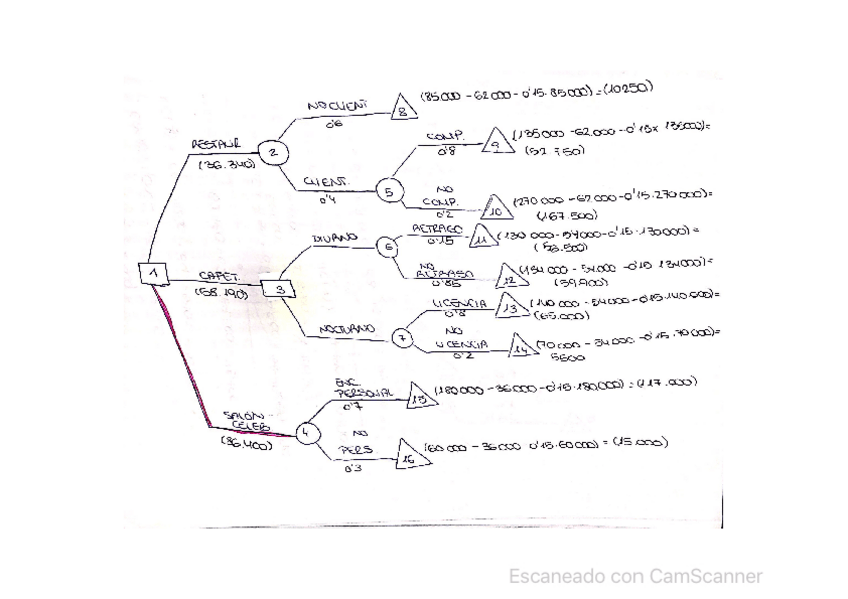 NO CLIENT
0'6
8
(85000 - 62000 - 0'15. 85000) = (10250)
RESTAUR
(36.340)
2
CLIENT.
0'4
5
COMP.
0'8
9
(135000 - 62.000 - 0'15 x 135000) =
(52.750)
NO
COMP.
0'2
10
(270000 - 62000 - 0'15.270000) =
(167.500)
1
CAFET.
(58.190)
3
DIURNO
6
RETRASO
0'15
11
(130000 - 54000 - 0'15.130000) =
(56.500)
NO
RETRASO
0'85
12
(134000 - 54000 - 0'15 134000) =
(59.900)
NOCTURNO
7
LICENCIA
0'8
13
(140000 - 54000 - 0'15.140000) =
(65.000)
NO
LICENCIA
0'2
14
(70000 - 54000 - 0'15.70000) =
5500
SALÓN
CELEB
(86.400)
4
ENC.
PERSONAL
0'7
15
(180000 - 36000 - 0'15.180000) = (117.000)
NO
PERS
0'3
16
(60000 - 36000 0'15.60000) = (15.000)
Escaneado con CamScanner